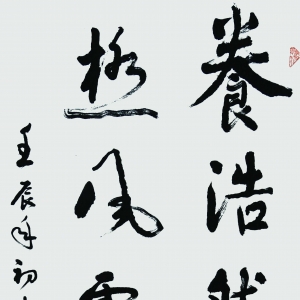 養浩然
極風雲
壬辰年初